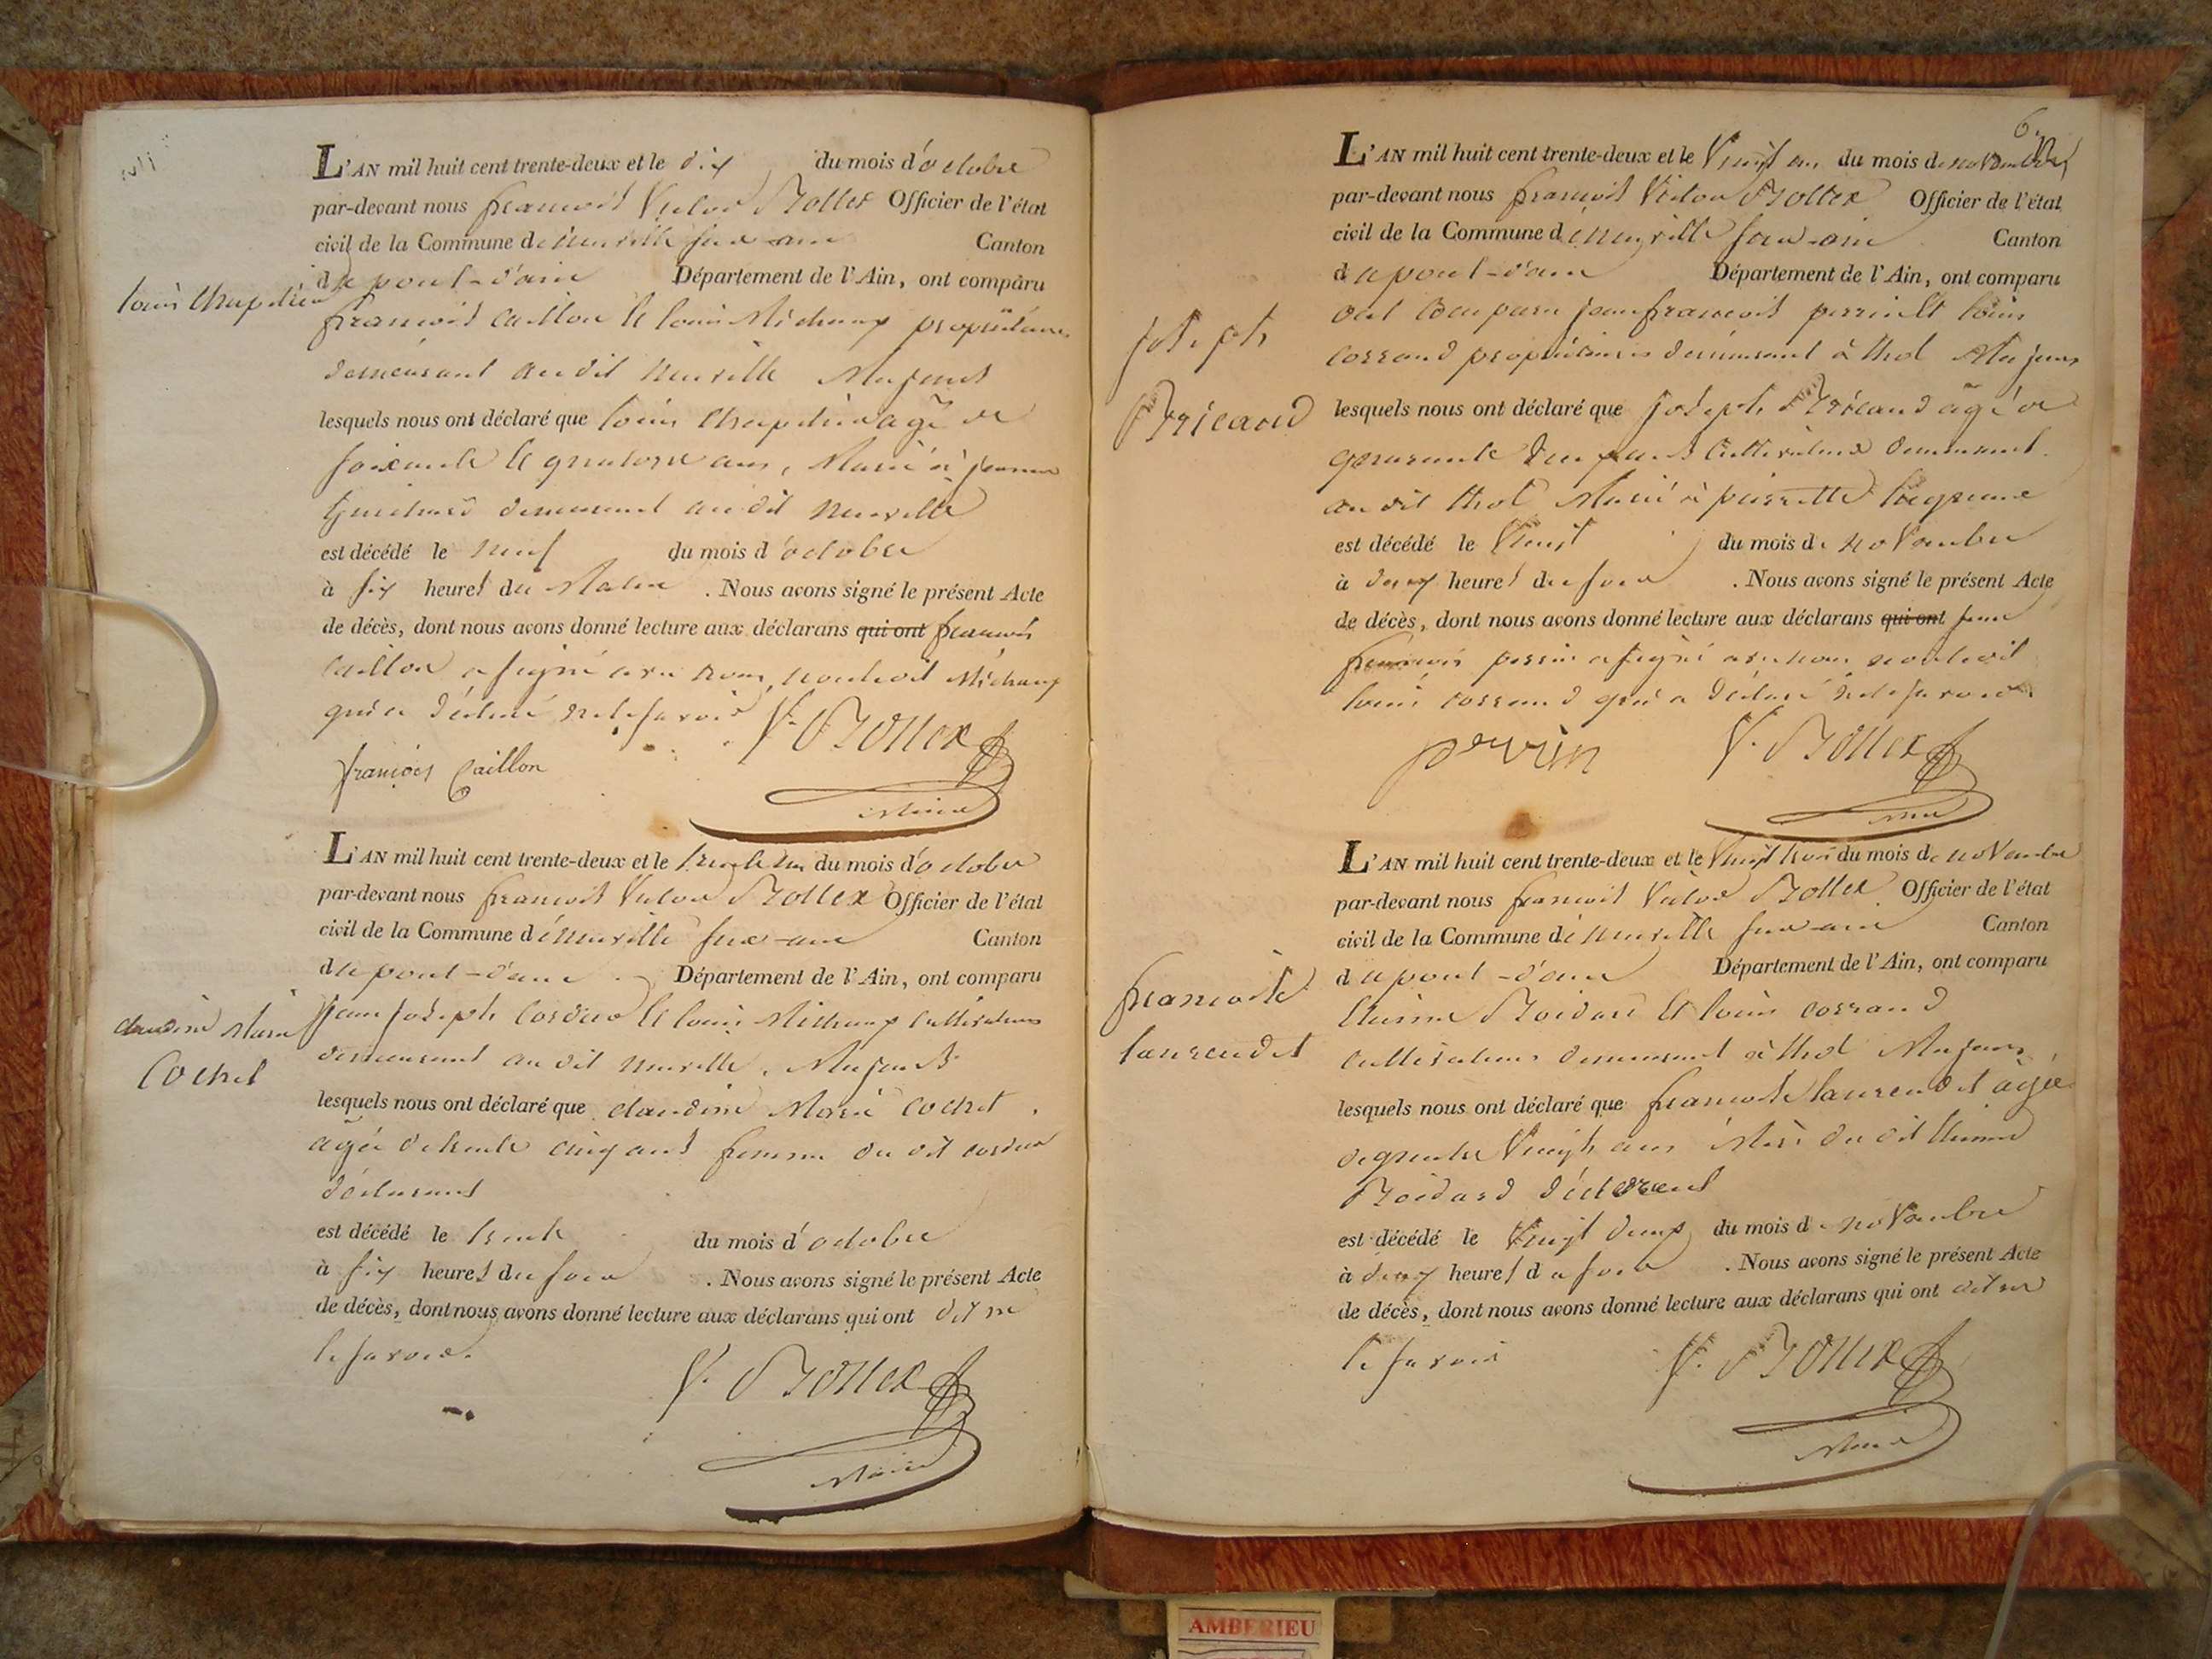 L'AN mil huit cent trente-deux et le dix du mois d'octobre
par-devant nous françois Victor Officier de l'état
civil de la Commune de neuville sur-ain Canton
de pont-d'ain Département de l'Ain, ont comparu
louis Chapelin
françois Caillon et louis Michaux propriétaires
demeurant au dit neuville Majeurs
lesquels nous ont déclaré que louis Chapelin agé de
soixante et quatorze ans, Marié à jeanne
demeurant au dit neuville
est décédé le neuf du mois d'octobre
à six heures du Matin . Nous avons signé le présent Acte
de décès, dont nous avons donné lecture aux déclarans qui ont françois
Caillon a signé avec nous, non led it Michaux
qui a déclaré ne le savoir
françois Caillon
Maire
L'AN mil huit cent trente-deux et le trente un du mois d'octobre
par-devant nous françois Victor Officier de l'état
civil de la Commune de neuville sur-ain Canton
de pont-d'ain Département de l'Ain, ont comparu
claudine Marie
Cochet
jean joseph Cordier et louis Michaux Cultivateurs
demeurant au dit neuville, Majeurs
lesquels nous ont déclaré que claudine Marie Cochet
agée de trente cinq ans femme du dit cordier
déclarant
est décédé le trente du mois d'octobre
à six heures du soir . Nous avons signé le présent Acte
de décès, dont nous avons donné lecture aux déclarans qui ont dit ne
le savoir.
Maire
6.
L'AN mil huit cent trente-deux et le Vingt un du mois de novembre
par-devant nous françois Victor Officier de l'état
civil de la Commune de neuville sur-ain Canton
de pont-d'ain Département de l'Ain, ont comparu
ont comparu jean françois perrin et louis
joseph
corrand propriétaires demeurant à thol Majeurs
lesquels nous ont déclaré que joseph agé de
quarante deux ans Cultivateur demeurant
au dit thol Marié à pierrette
est décédé le Vingt du mois de novembre
à deux heures du soir . Nous avons signé le présent Acte
de décès, dont nous avons donné lecture aux déclarans qui ont jean
françois perrin a signé avec nous non ledit
louis corrand qui a déclaré ne le savoir
perrin
Maire
L'AN mil huit cent trente-deux et le Vingt trois du mois de novembre
par-devant nous françois Victor Officier de l'état
civil de la Commune de neuville sur-ain Canton
de pont-d'ain Département de l'Ain, ont comparu
françoise
laurendet
Etienne et louis corrand
cultivateurs demeurant à thol Majeurs
lesquels nous ont déclaré que françoise laurendet agée
de quatre Vingts ans Mère du dit Etienne
déclarant
est décédé le Vingt deux du mois de novembre
à deux heures du soir . Nous avons signé le présent Acte
de décès, dont nous avons donné lecture aux déclarans qui ont dit ne
le savoir
Maire
AMBERIEU